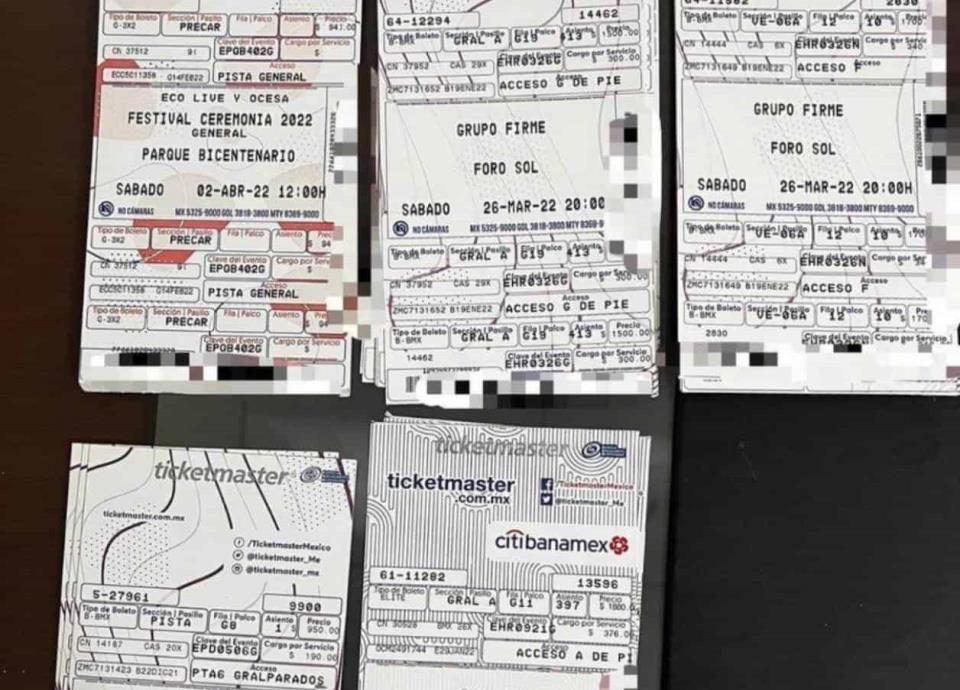 Tipo de Boleto Sección | Pasillo Fila | Palco Asiento Precio
G-3X2 PRECAR $ 941.00
Clave del Evento Cargo por Servicio
CN 37512 91 EPOB402G $
Acceso
ECC5C11358 Q14FEB22 PISTA GENERAL
ECO LIVE Y OCESA
FESTIVAL CEREMONIA 2022
GENERAL
PARQUE BICENTENARIO
SABADO 02-ABR-22 12:00H
NO CÁMARAS MX 5325-9000 GDL 3818-3800 MTY 8369-9000
Tipo de Boleto Sección | Pasillo Fila | Palco Asiento
G-3X2 PRECAR $ 94
Clave del Evento Cargo por Servicio
CN 37512 91 EPOB402G $
Acceso
ECC5C11358 Q14FEB22 PISTA GENERAL
Tipo de Boleto Sección | Pasillo Fila | Palco Asiento
G-3X2 PRECAR $ 94
Clave del Evento Cargo por Servicio
EPOB402G $
64-12294 14462
Tipo de Boleto Sección | Pasillo Fila | Palco Asiento Precio
B-BMX GRAL A G19 413
Clave del Evento Cargo por Servicio
CN 37952 CAS 29X EHR0326G $ 300.00
Acceso
ZMC7131652 B19ENE22 ACCESO G DE PIE
GRUPO FIRME
FORO SOL
SABADO 26-MAR-22 20:00
NO CÁMARAS MX 5325-9000 GDL 3818-3800 MTY 8369-9
Tipo de Boleto Sección | Pasillo Fila | Palco Asiento
B-BMX GRAL A G19 413
Clave del Evento Cargo por Servicio
CN 37952 CAS 29X EHR0326G 300.00
Acceso
ZMC7131652 B19ENE22 ACCESO G DE PIE
Tipo de Boleto Sección | Pasillo Fila | Palco Asiento Precio
B-BMX GRAL A G19 413 $ 1500.00
Clave del Evento Cargo por Servicio
14462 EHR0326G $ 300.00
2830
Tipo de Boleto Sección | Pasillo Fila | Palco Asiento
B-BMX VE-06A 12 10 $
Clave del Evento Cargo por Servicio
CN 14444 CAS 6X EHR0326N
Acceso
ZMC7131649 B19ENE22 ACCESO F
GRUPO FIRME
FORO SOL
SABADO 26-MAR-22 20:00H
NO CÁMARAS MX 5325-9000 GDL 3818-3800 MTY 8369-9000
Tipo de Boleto Sección | Pasillo Fila | Palco Asiento
B-BMX VE-06A 12 10 $
Clave del Evento Cargo por Servicio
CN 14444 6X EHR0326N $
Acceso
ZMC7131649 B19ENE22 ACCESO F
Tipo de Boleto Sección | Pasillo Fila | Palco Asiento Precio
B-BMX VE-06A 12 10 $ 170
Clave del Evento Cargo por Servicio
2830
ticketmaster
ticketmaster.com.mx
/TicketmasterMexico
@ticketmaster_Me
@ticketmaster_mx
5-27961 9900
Tipo de Boleto Sección | Pasillo Fila | Palco Asiento Precio
B-BMX PISTA G8 1 $ 950.00
Clave del Evento Cargo por Servicio
CN 14187 CAS 20X EPD0506G $ 190.00
Acceso
ZMC7131423 B22DIC21 PTA6 GRALPARADOS
ticketmaster
ticketmaster
.com.mx
/TicketmasterMexico
@ticketmaster_Me
citibanamex
61-11282 13596
Tipo de Boleto Sección | Pasillo Fila | Palco Asiento Precio
ELITE GRAL A G11 397 $ 1880.
Clave del Evento Cargo por Servicio
CN 30528 BMX 26X EHR0921G $ 376.00
Acceso
OCM2491744 E29JAN22 ACCESO A DE PI